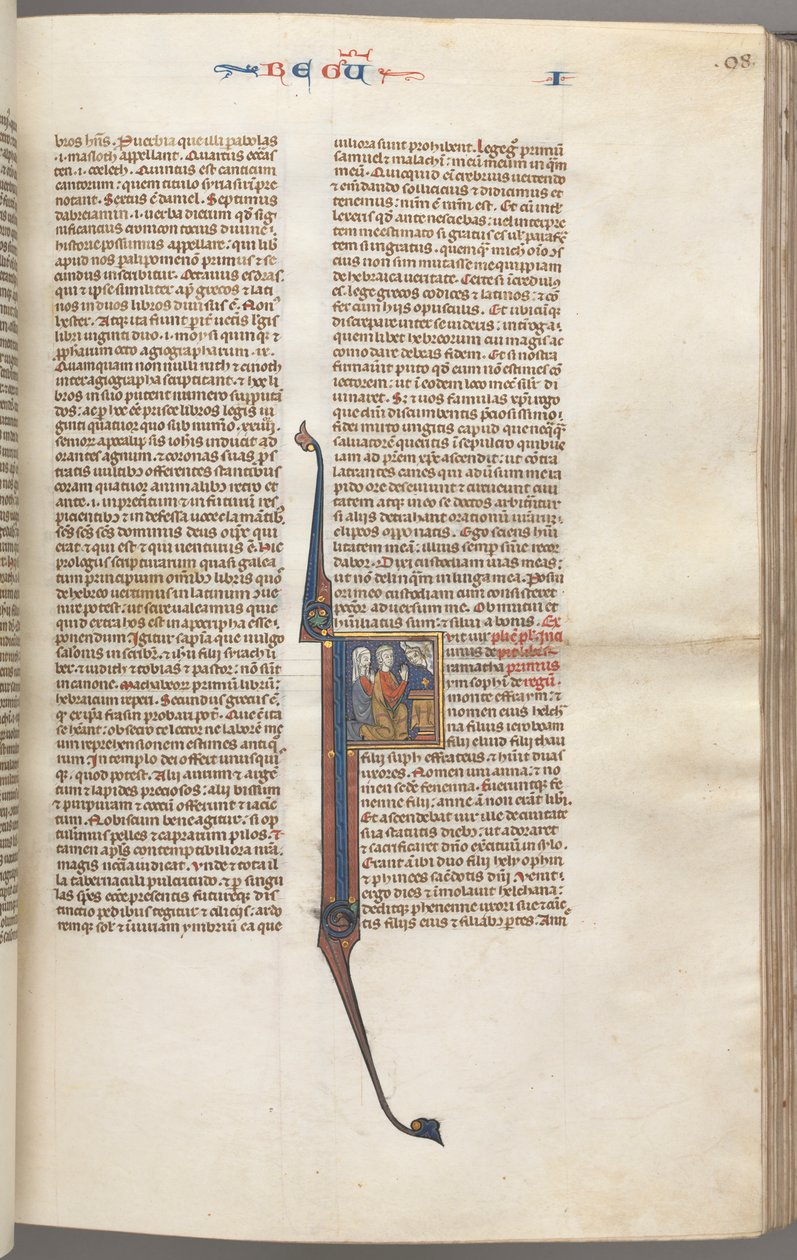 REGŪ I
.98.
bros hn̄s. Puerbia que illi pabolas
.i. masloth appellant. Quartus
ten .i. coeleth. Quintus est canticum
cantorum: quem titulo
notant. Sextus ē daniel. Septimus
dabreiamin .i. verba dierum qđ sig
nificantius cronicon totius diuine
historie possumus appellare: qui lib
apud nos palipomenō primus ⁊ se
cundus inscribitur. Octauus esdras.
qui ⁊ ipse similiter apđ grecos ⁊ lati
nos in duos libros diuisus ē. Non
hester. Atqɜ ita fiunt
libri uiginti duo .i. moysi quinqɜ ⁊
pphetarum octo agiographarum .ix.
Quamquam non nulli ruth ⁊ cinoth
inter agiographa scriptitant. ⁊ hos li
bros in suo putent numero supputā
dos: ac p hoc ēē prisce libros legis ui
ginti quatuor quos sub numo .xxiiii.
senior apocalip̄sis iohis inducit ad
orantes agnum. ⁊ coronas suas ps
tratis uultibus offerentes stantibus
coram quatuor animalibus retro et
ante .i. in preteritum ⁊ in futurū res
picientibꝰ ⁊ indefessa uoce clamātibꝰ.
scs̄ scs̄ scs̄ dominus deus
erat ⁊ qui est ⁊ qui uenturus ē. Hic
prologus scripturarum quasi galea
tum principium omībꝰ libris quos
de hebreo uertimus in latinum
nire potest: ut scire ualeamus quic
quid extra hos est in apocripha esse
ponendum. Igitur sapīa que uulgo
salonis inscribitur. ⁊ ihū filii syrach li
ber. ⁊ iudith ⁊ tobias ⁊ pastor: nō sūt
in canone. Machabeoꝝ primū librū:
hebraicum reperi. Secundus grecus ē.
qɜ ex ipa frasin probari pot̄. Que cū ita
se hēant: obsecro te lector ne laborē me
um reprehensionem estimes antiqͦ
rum. In templo dei offert unusquis
qɜ. quod potest. Alii aurum ⁊ argē
tum ⁊ lapides preciosos: alii bissum
⁊ purpuram ⁊ coccū offerunt ⁊ iacīc
tum. Nobiscum bene agitur: si op
tulimus pelles ⁊ caprarum pilos. Et
tamen apls̄ contemptibiliora nrā:
magis necc̄aria iudicat. Vnde ⁊ tota il
la tabernaculi pulcritudo. ⁊ p singu
las spēs ecc̄e presentis futureqɜ dis
tinctio pellibus tegitur ⁊ cilicijs: ardo
remqɜ sol̄ ⁊ iniuriam ymbriū ea que
uiliora sunt prohibent. Lege gͦ primū
samuel ⁊ malachī: meū meum inqͣm
meū. Quicquid ēī crebrius uertendo
⁊ emdando sollicitius ⁊ didicimus et
tenemus: nrm̄ ē nrm̄ est. Et cū intell̄
lexeris qđ ante nesciebas: uel interpre
tem me estimato si gratus es uł parafr̄
tem si ingratus. quemqͣm michi oīo ꝯs
cius non sim mutasse me quippiam
de hebraica ueritate. Certe si īcredulꝰ
es. lege grecos codices ⁊ latinos: ⁊ cō
fer cum hijs opusculis. Et ubicūqɜ
discrepare inter se uideris: intͤrroga
quem libet hebreorum cui magis ac
comodare debeas fidem. Et si nostra
firmauerit puto qđ eum nō estimes cō
iectorem: ut ī eodem loco mec̄ silꝰr di
uinaret. S; ⁊ uos famulas xpi rogo
que dn̄i discumbentis p̄ciosissimo
fidei mirto ungitis capud que neqͣqͣ
saluatorē queritis ī sepulcro quibus
iam ad prem̄ xpc̄ ascendit: ut cōtra
latrantes canes qui adūsum me ra
pido ore deseuiunt ⁊ circueunt ciui
tatem atqɜ in eo se doctos arbitrātur
si alijs detrahant orationū urārū
clipeos opponatis. Ego sciens hūi
litatem meā: illius semp sn̄ie recor
dabor. Dixi custodiam uias meas:
ut nō delinqͣm in lingua mea. Posui
ori meo custodiam cum consisteret
pecc̄or aduersum me. Obmutui et
humiliatus sum: ⁊ silui a bonis. Ex
plic̄ p̄l. Inci
primus
regū.
Fuit uir
unus de
ramatha
ym sophī de
monte effraym: ⁊
nomen eius helch
na filius ieroboam
filii eliud filii thau
filii suph effrateus. ⁊ hūit duas
uxores. Nomen uni anna: ⁊ no
men sedē fenenna. Fueruntqɜ fe
nenne filii: anne ā non erāt libi.
Et ascendebat uir ille de ciuitate
sua statutis diebꝰ: ut adoraret
⁊ sacrificaret dn̄o exercituū in sylo.
Erant ā ibi duo filii hely ophni
⁊ phinees sacēdotis dn̄i. Venit
ergo dies ⁊ īmolauit helchana:
deditqɜ phenenne uxori sue ⁊ cūc
tis filiis eius ⁊ filiabꝰ ptes. Ann